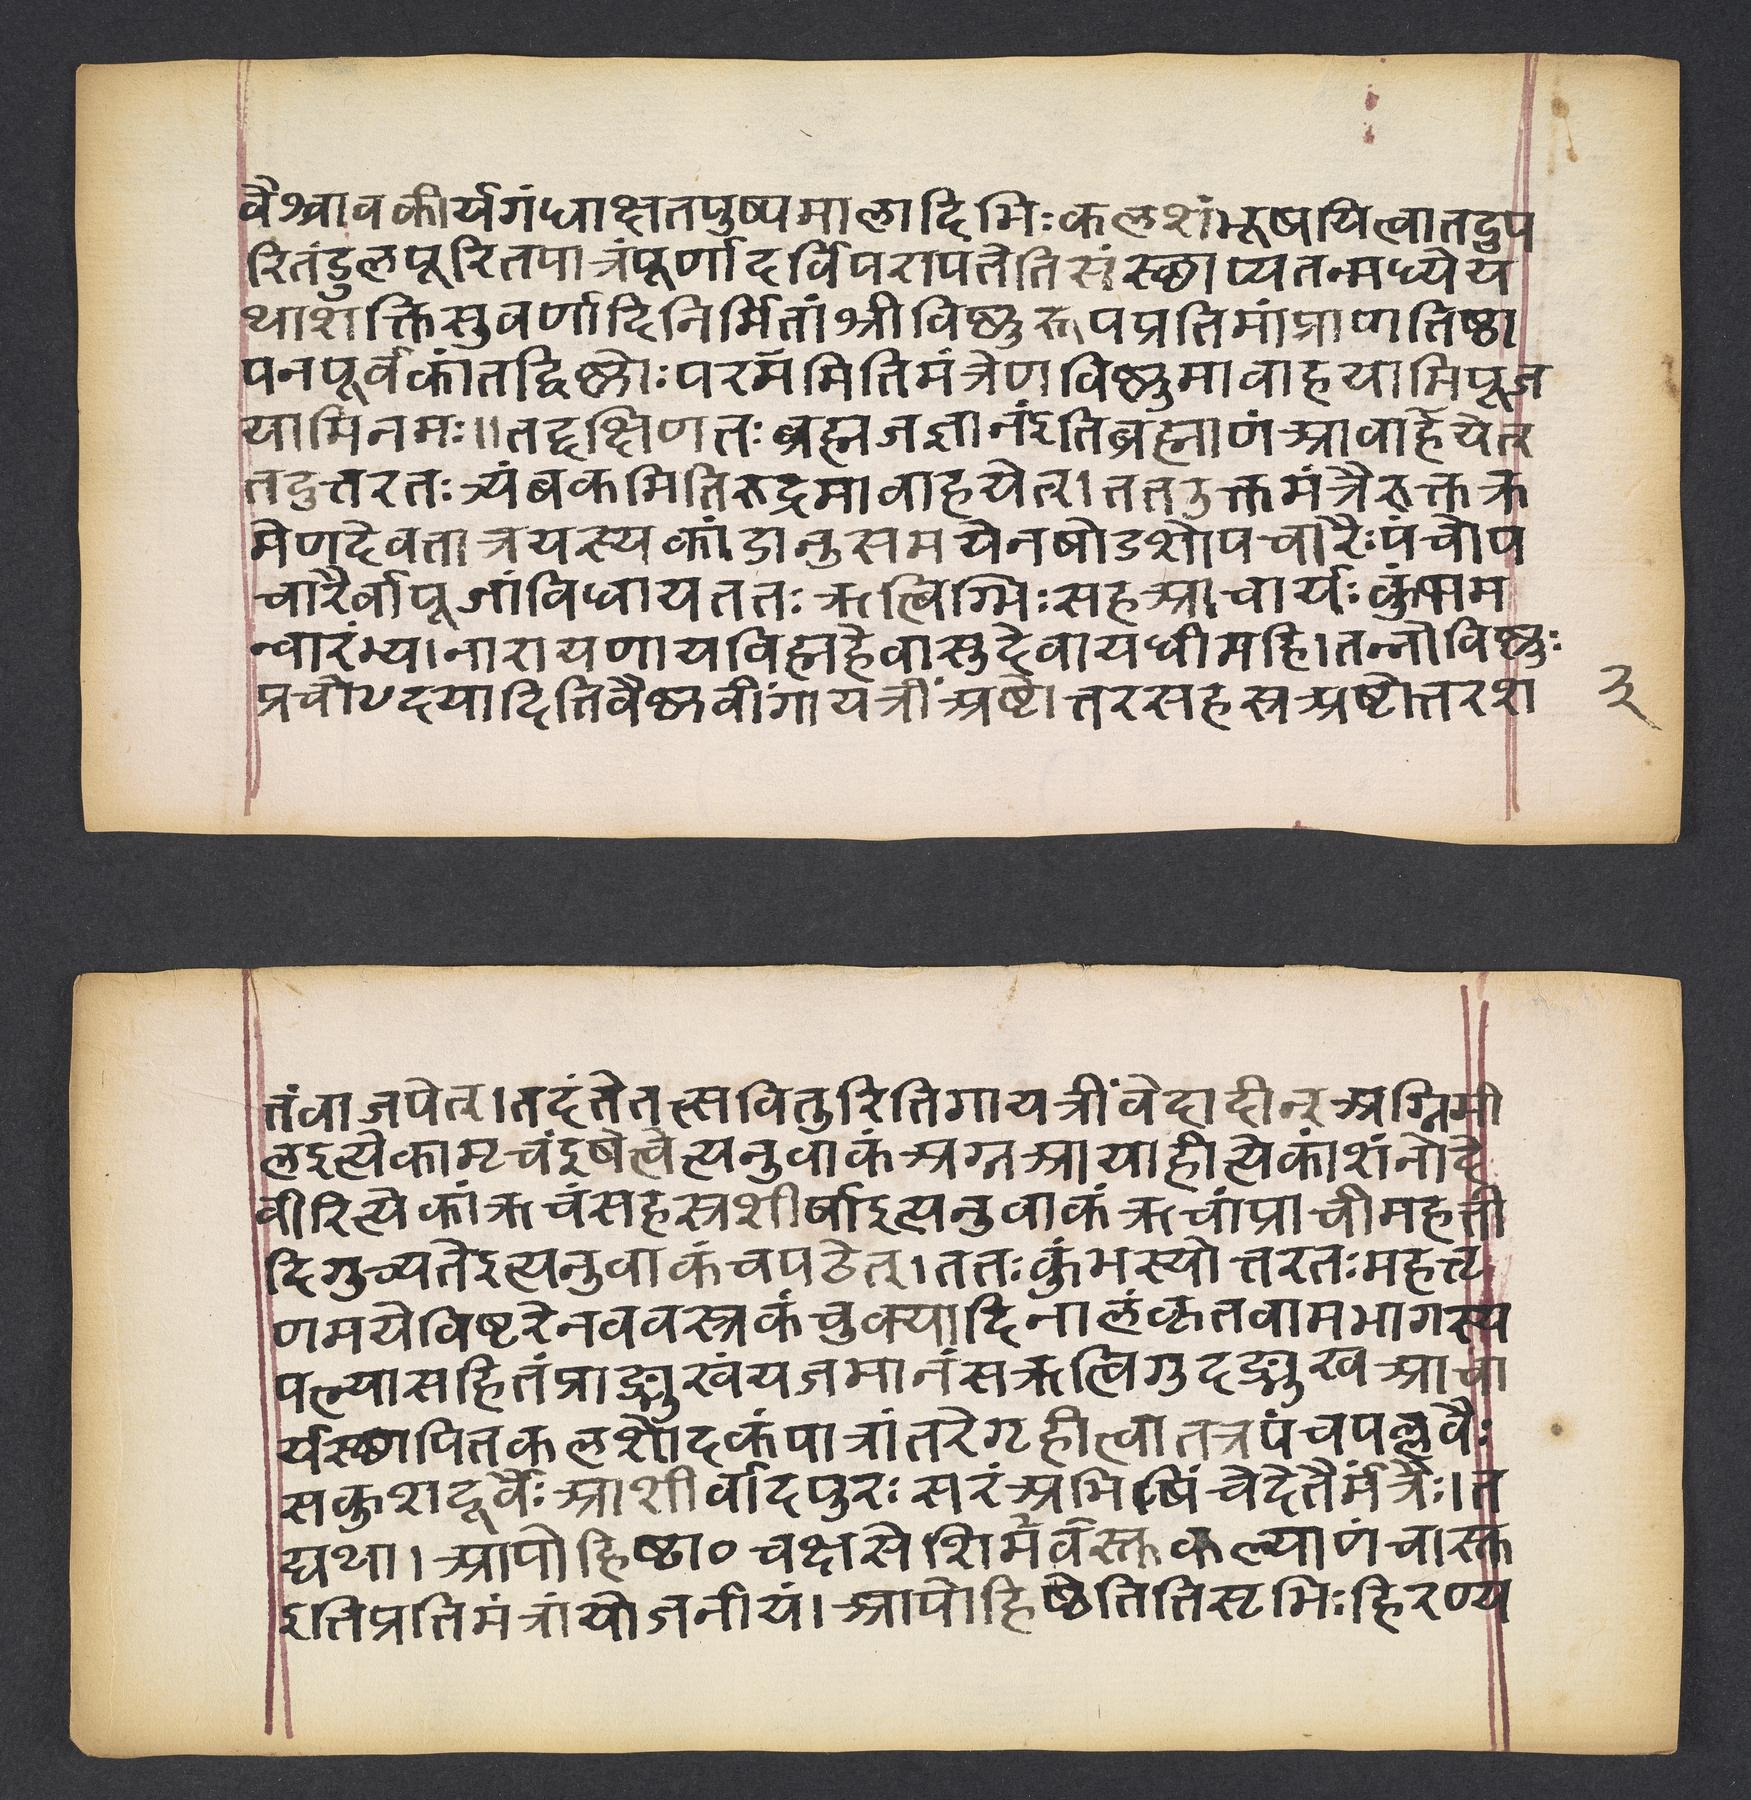 वैश्वावकीर्यगंधाक्षतपुष्पमालादिभिःकलशंभूषयित्वातदुप
रितंडुलपूरितपात्रंपूर्णादर्विपरापतेतिसंस्छाप्यतन्मध्येय
थाशक्तिसुवर्णादिनिर्मितांश्रीविष्णुरूपप्रतिमांप्राणतिष्ठा
पनपूर्वकांतद्विष्णोःपरममितिमंत्रेणविष्णुमावाहयामिपूज
यामिनमः॥तद्दक्षिणतःब्रह्मजज्ञानंइतिब्रह्माणंआवाहयेत्
तदुत्तरतःत्र्यंबकमितिरुद्रमावाहयेत्।तत्तदुक्तमंत्रैरुक्तक्र
मेणदेवतात्रयस्यकांडानुसमयेनषोडशोपचारैःपंचोप
चारैर्वापूजांविधायततःऋत्विग्भिःसहआचार्यःकुंभम
न्वारंभ्य।नारायणायविद्महेवासुदेवायधीमहि।तन्नोविष्णुः
प्रचोदयादितिवैष्णवींगायत्रींअष्टोत्तरसहस्रअष्टोत्तरश
३
तंवाजपेत्।तदंतेतत्सवितुरितिगायत्रींवेदादीन्अग्निमी
लइत्येकामृचंइषेत्वेत्यनुवाकंअग्नआयाहीत्येकांशंनोदे
वीरित्येकांऋचंसहस्रशीर्षाइत्यनुवाकंऋचांप्राचीमहती
दिगुच्यतेइत्यनुवाकंचपठेत्।ततःकुंभस्योत्तरतःमहत्तृ
णमयेविष्टरेनववस्त्रकंचुक्यादिनालंकृतवामभागस्य
पत्न्यासहितंप्राङ्मुखंयजमानंसऋत्विगुदङ्मुखआचा
र्यस्छापितकलशोदकंपात्रांतरेगृहीत्वातत्रपंचपल्लवैः
सकुशदूर्वैःआशीर्वादपुरःसरंअभिषिंचेदेतैर्मंत्रैः।त
द्यथा।आपोहिष्ठा०चक्षसेशिर्मवस्क्तकल्याणंचास्क्त
इतिप्रतिमंत्रांयोजनीयं।आपोहिष्ठेतितिसृभिःहिरण्य